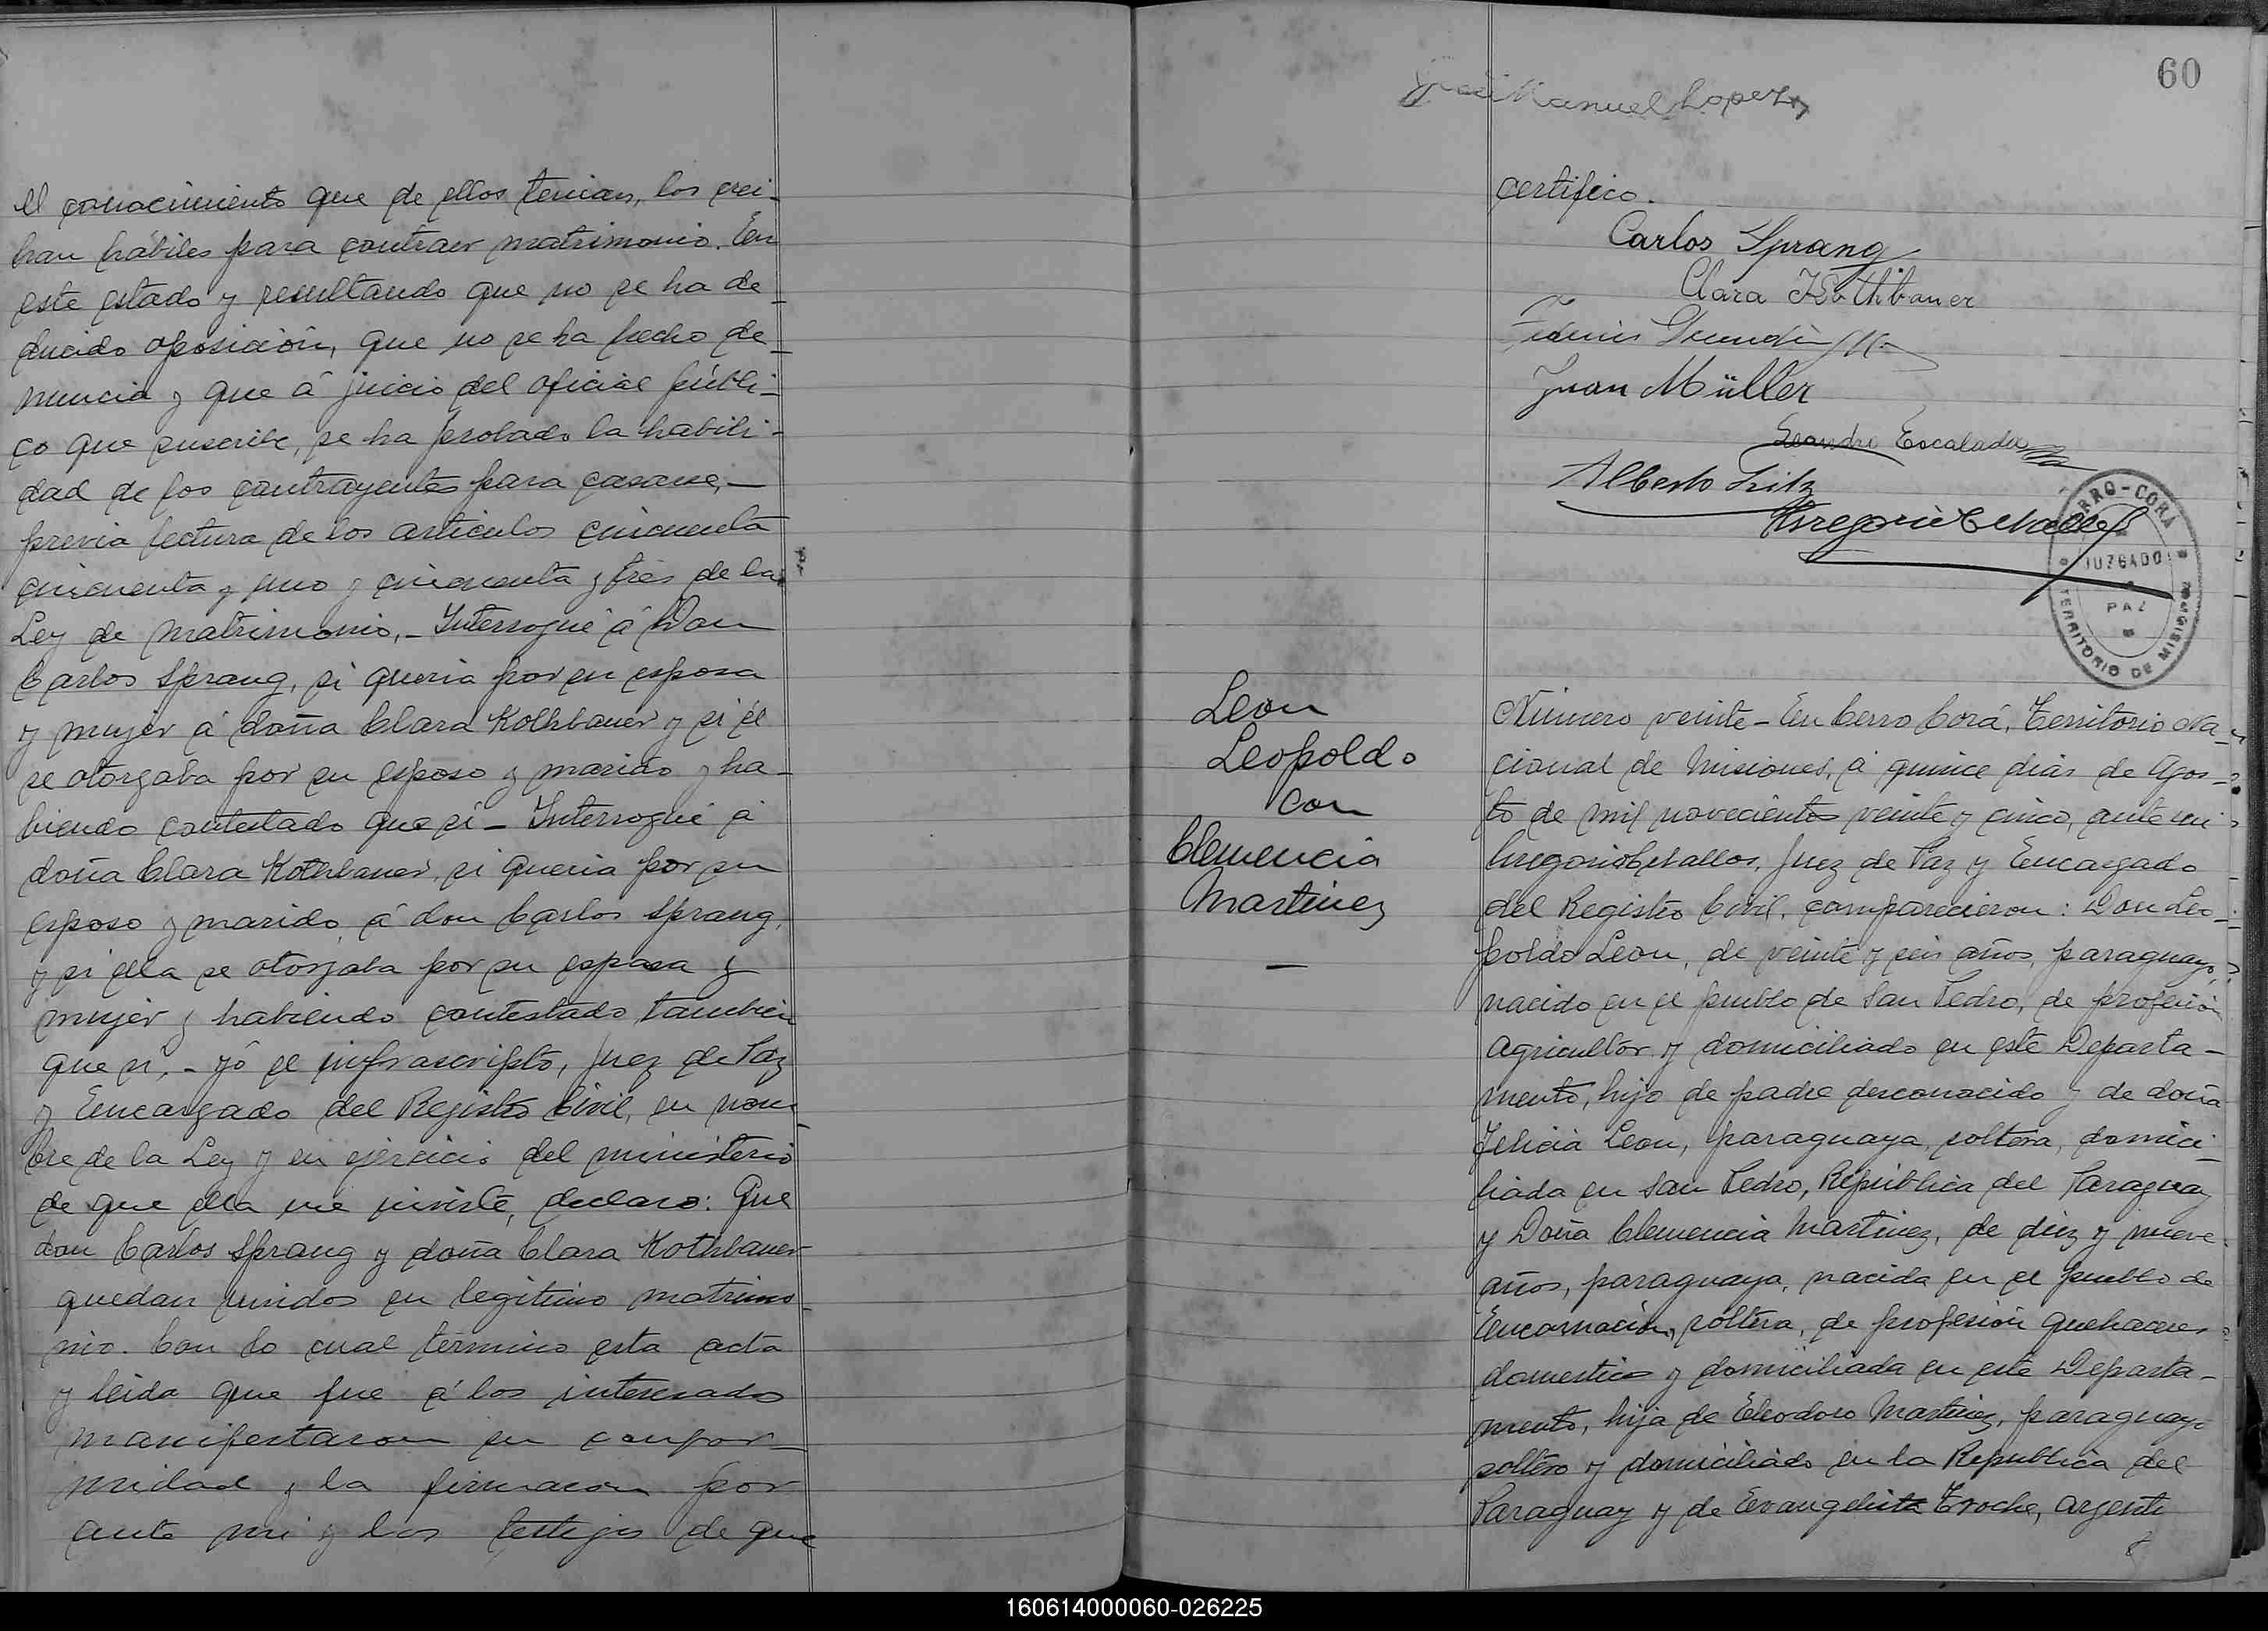 el conocimiento que de ellos tenian, los crei-
han hábiles para contraer matrimonio. En
este estado y resultando que no se ha de-
ducido oposición, que no se ha hecho de-
nuncia y que á juicio del oficial públi-
co que suscribe, se ha probado la habili-
dad de los contrayentes para casarse,-
previa lectura de los articulos cincuenta
cincuenta y uno y cincuenta y tres de la
Ley de matrimonio,- Interrogué á Don
Carlos Sprang, si queria por su esposa
y mujer á doña Clara Kothbauer y si él
se otorgaba por su esposo y marido y ha-
biendo contestado que si - Interrogué á
doña Clara Kothbauer, si queria por su
esposo y marido á don Carlos Sprang,
y si ella se otorgaba por su esposa y
mujer y habiendo contestado tambien
que si, - yó el infrascripto, Juez de Paz
y Encargado del Registro Civil, en nom-
bre de la Ley y en ejercicio del ministerio
de que ella me inviste, declaro: Que
don Carlos Sprang y doña Clara Kothbauer
quedan unidos en legitimo matrimo-
nio. Con lo cual termino esta acta
y leida que fue á los interesados
manifestaron su confor-
midad y la firmaron por
ante mi y los testigos de que
60
Manuel Lopez
certifico.
Carlos Sprang
Clara Kothbauer
Juan Müller
Leandro Escalada
Alberto
Gregorio Cevallos
CERRO-CORÁ
JUZGADO
PAZ
TERRITORIO DE MISIONES
Leon
Leopoldo
con
Clemencia
Martinez
—
Número veinte - En Cerro Corá, Territorio Na-
cional de Misiones, á quince dias de Agos-
to de mil novecientos veinte y cinco, ante mi
Gregorio Cevallos, Juez de Paz y Encargado
del Registro Civil, comparecieron: Don Leo-
poldo Leon, de veinte y seis años, paraguayo,
nacido en el pueblo de San Pedro, de profesión
agricultor y domiciliado en este Departa-
mento, hijo de padre desconocido y de doña
Felicia Leon, paraguaya, soltera, domici-
liada en San Pedro, República del Paraguay
y Doña Clemencia Martinez, de diez y nueve
años, paraguaya, nacida en el pueblo de
Encarnación, soltera, de profesión quehaceres
domesticos y domiciliada en este Departa-
mento, hija de Eleodoro Martinez, paraguayo
soltero y domiciliado en la Republica del
Paraguay y de Evangelista Troche, argenti
160614000060-026225